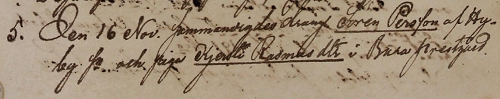 5. Den 16 Nov. sammanvigdes dräng Sören Persson af Hy-
by sn och piga Kjersti Rasmus dtr i Bara prestgård.